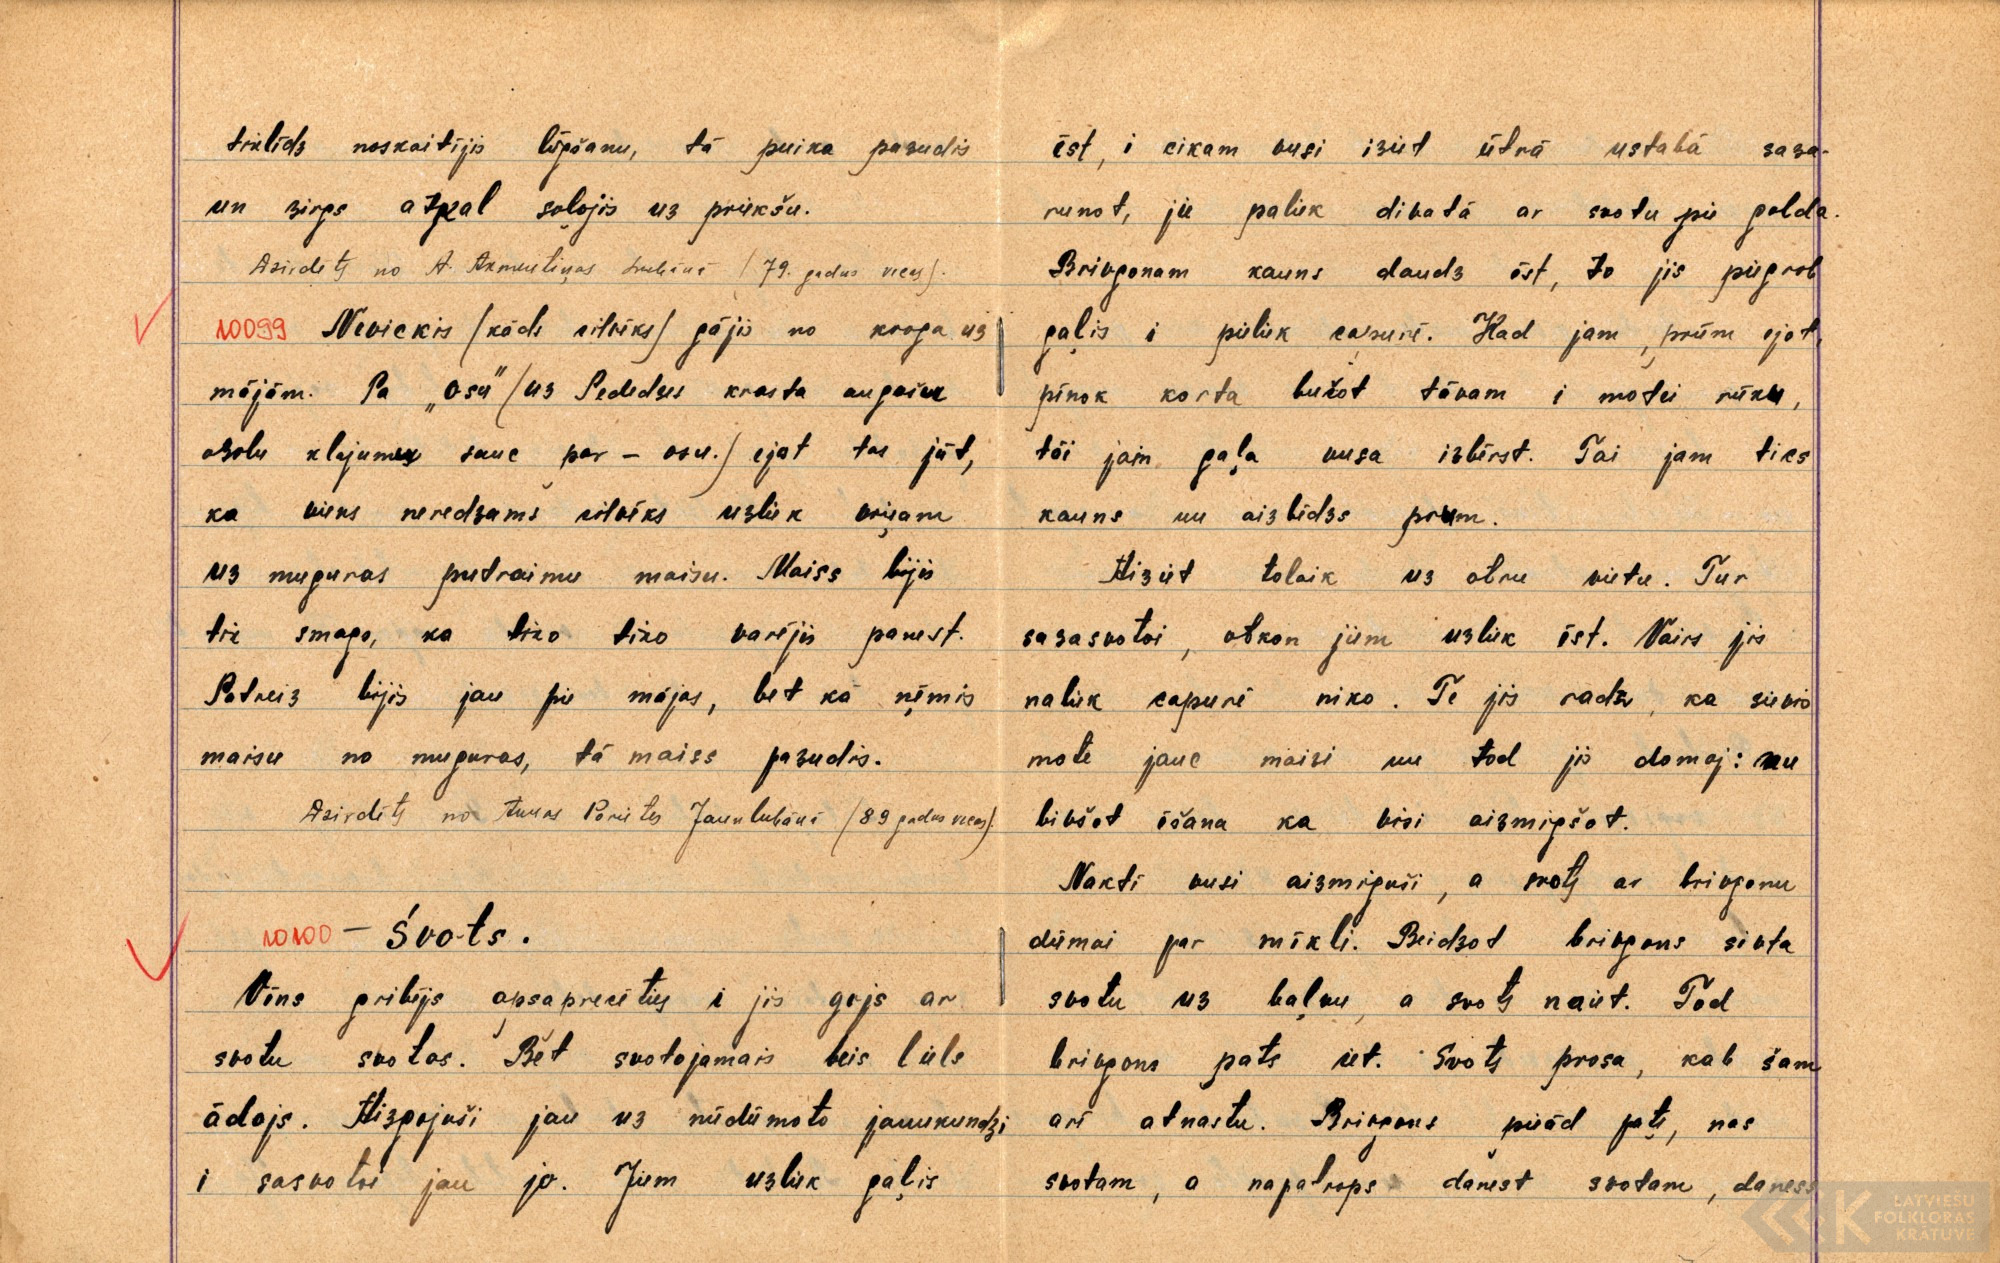 tiklīdz noskaitījis lūgšanu, tā puika pazudis
un zirgs atkal soļojis uz priekšu.
Dzirdēts no A. Akmentiņas Lubānē (79. gadus vecas).
10099 Nevickis (kāds cilvēks) gājis no kroga uz
mājām. Pa „osu" (uz Pededzes krasta augošu
ozolu klajumu sauc par – osu.) ejot tas jūt,
ka viens neredzams cilvēks uzliek viņam
uz muguras putraimu maisu. Maiss bijis
tik smags, ka tiko tiko varējis panest.
Patreiz bijis jau pie mājas, bet kā ņēmis
maisu no muguras, tā maiss pazudis.
Dzirdēts no Annas Jaunlubānē (89 gadus vecas).
10100 – Śvots.
Vīns gribējs apsaprecēties i jis gojs ar
svotu svotos. Bet svotojamais beis liels
ādojs. Aizgojuši jau uz nūdūmoto jaunkundzi
i sasvotoi jau jo. Jiem uzliek gaļis
ēst, i cikam vusi iziet ūtrā ustabā saza-
runot, jie paliek divatā ar svotu pie golda.
Brivgonam kauns daudz ēst, to jis piegrob
gaļis i pieliek capurē. Kad jam, priim ejot,
pīnok korta bučot tāvam i motei rūku,
tōi jam gaļa vusa izbērst. Tai jam ties
kauns un aizlīdzs prum.
Aiziet tolaik uz otru vietu. Tur
sazasvotoi, otkon jiem uzliek ēst. Vairs jis
naliek capurē niko. Te jis radz, ka sievis
mote jauc maizi un tod jis domoj: nu
bivšot ēšana ka visi aizmigšot.
Naktī vusi aizmiguši, a svots ar brivgonu
dūmoi par mīkli. Beidzot brivgons sivta
svotu uz baļvu, a svots naiet. Tod
brivgons pats iet. Svots prosa, kab šam
arī atnastu. Brivgons pieād pats, nas
svotam, a napatrops danest svotam, daness
LATVIEŠU
FOLKLORAS
KRĀTUVE